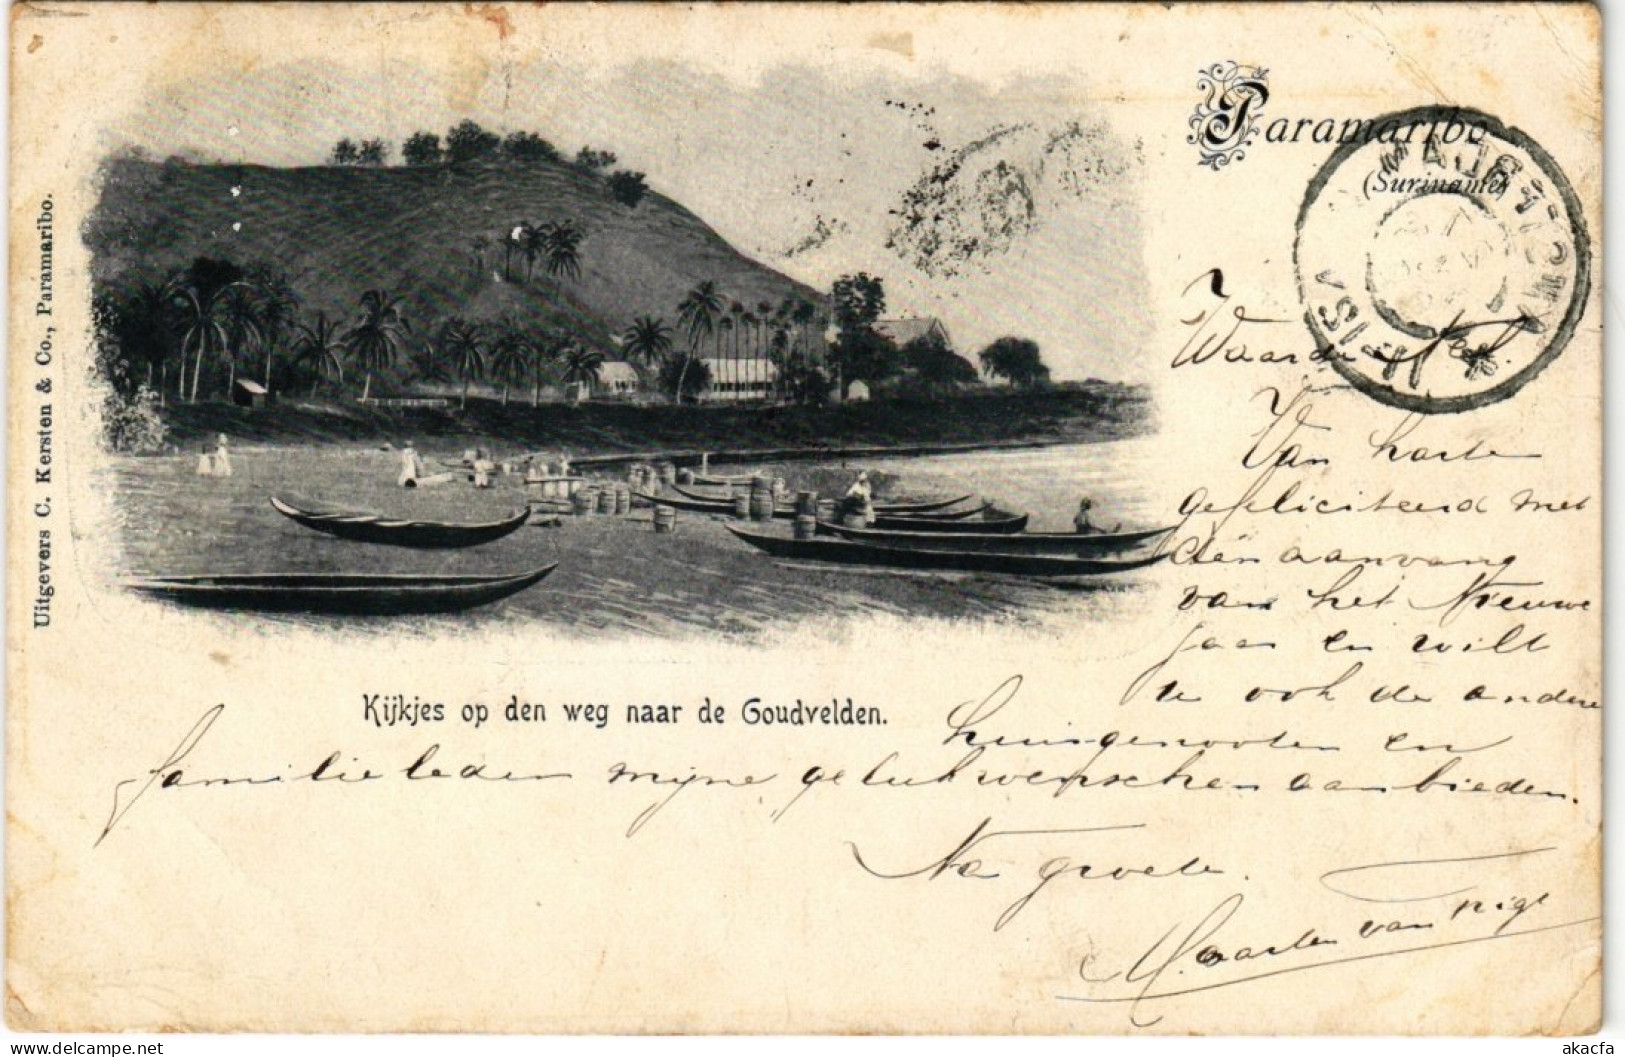 Paramaribo
(Suriname)
Uitgevers C. Kersten & Co., Paramaribo.
Waarde
Van harte
gefeliciteerd met
den aanvang
van het Nieuwe
jaar en wilt
u ook de andere
Kijkjes op den weg naar de Goudvelden.
huisgenooten en
familieleden mijne gelukwenschen aanbieden.
Na groete.
Maarten van
akacfa